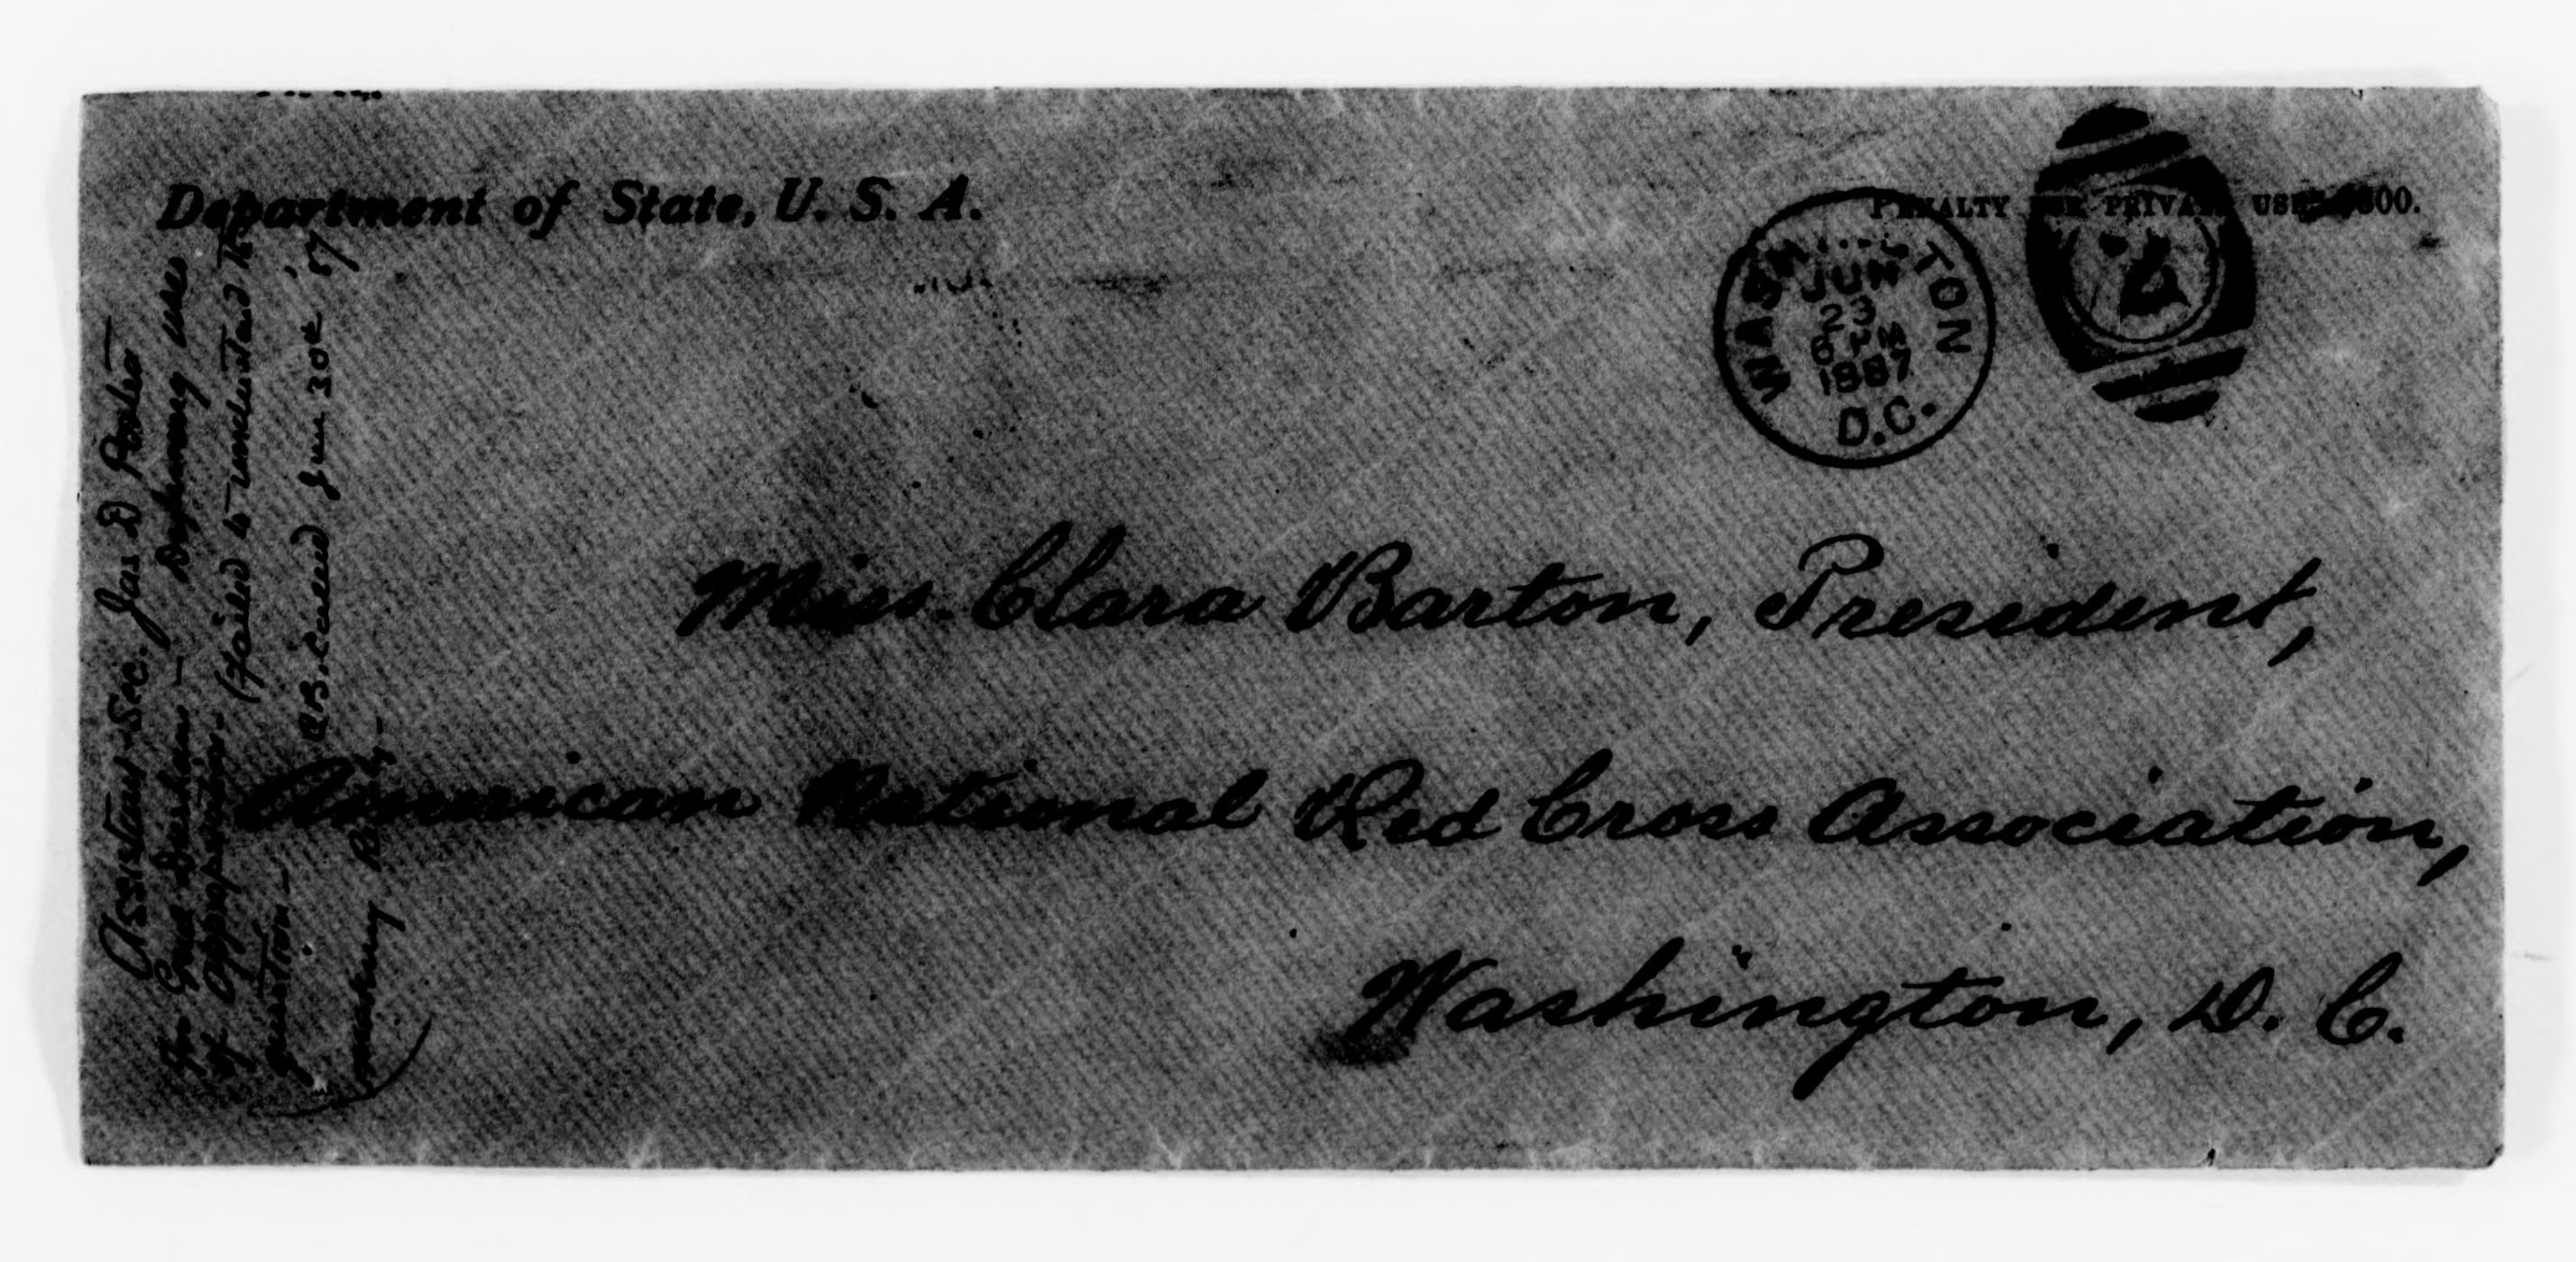 Department of State, U. S. A.
PENALTY FOR PRIVATE USE $300.
WASHINGTON
JUN
23
6 PM
1887
D.C.
Miss. Clara Barton, President,
American National Red Cross Association,
Washington, D. C.
Assistant Sec. Jas D Porter
for Gen — Defining use
of Appropriation. (failed to understand the
question —
C.B. called June 30th '87
making Reply —